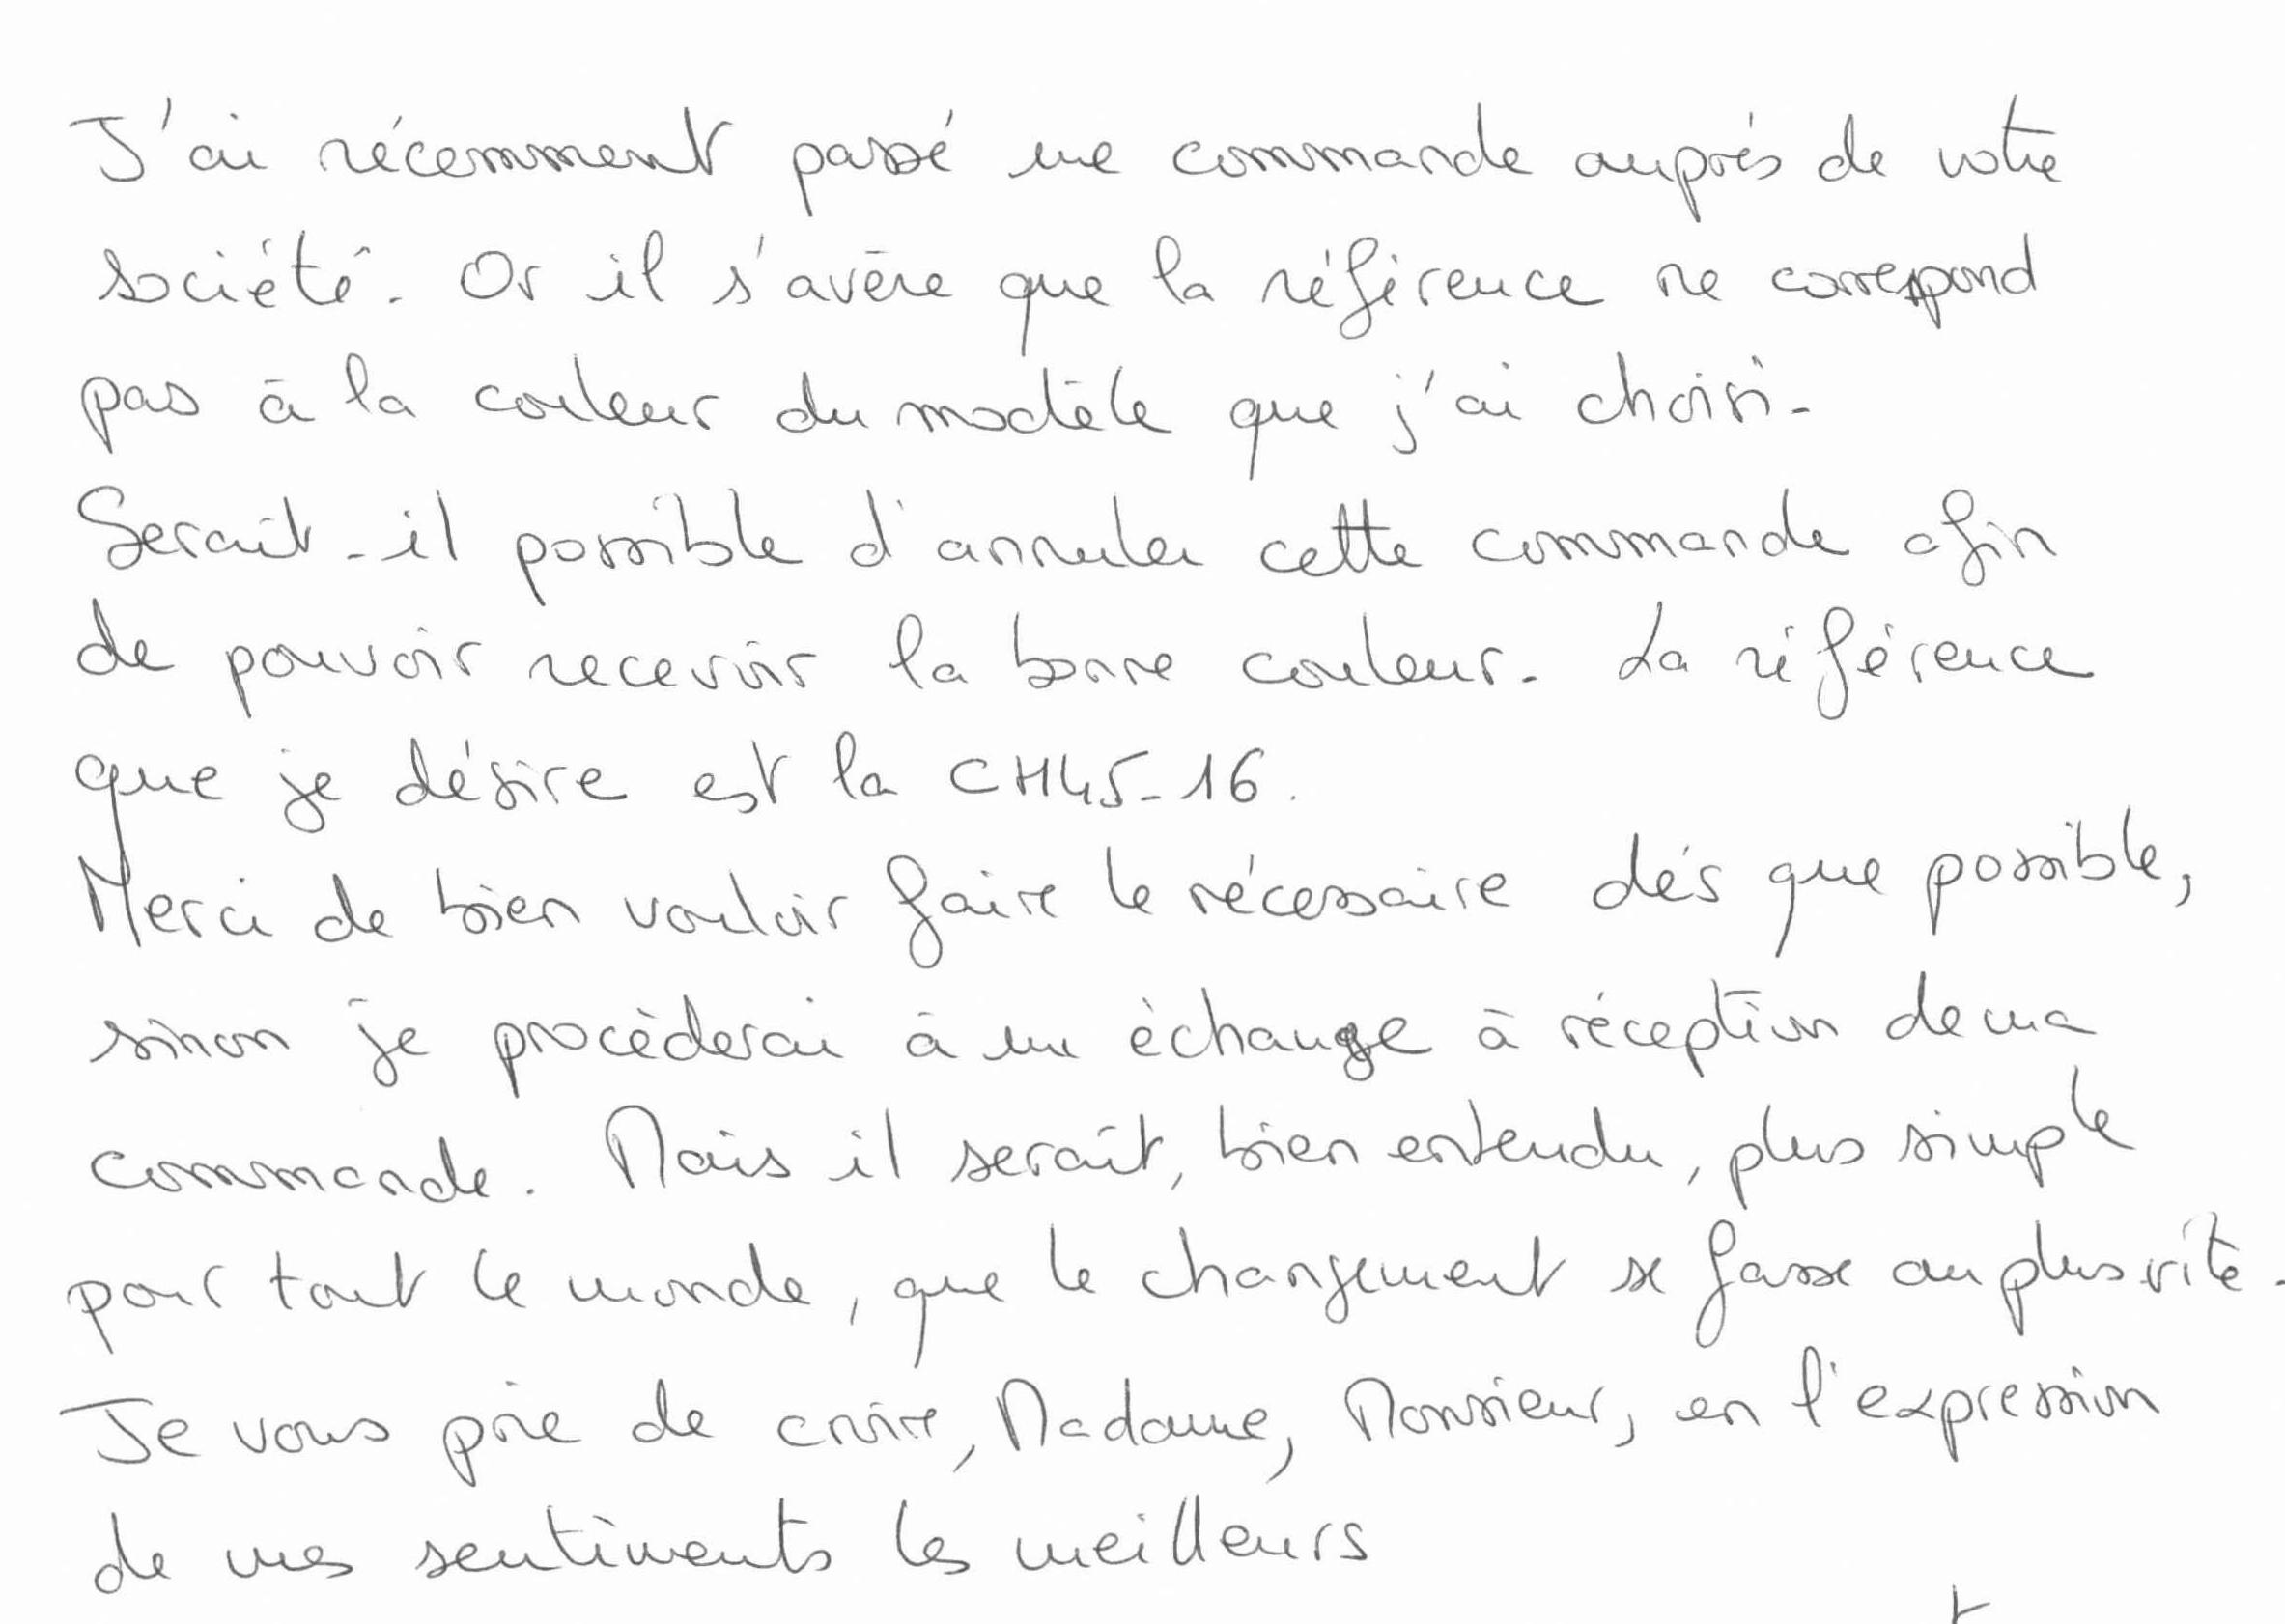 J'ai récemment passé une commande auprès de votre
société. Or il s'avère que la référence ne correspond
pas à la couleur du modèle que j'ai choisi.
Serait-il possible d'annuler cette commande afin
de pouvoir recevoir la bonne couleur. La référence
que je désire est la CH45-16.
Merci de bien vouloir faire le nécessaire dès que possible,
sinon je procèderai à un échange à réception de ma
commande. Mais il serait, bien entendu, plus simple
pour tout le monde, que le changement se fasse au plus vite.
Je vous prie de croire, Madame, Monsieur, en l'expression
de mes sentiments les meilleurs